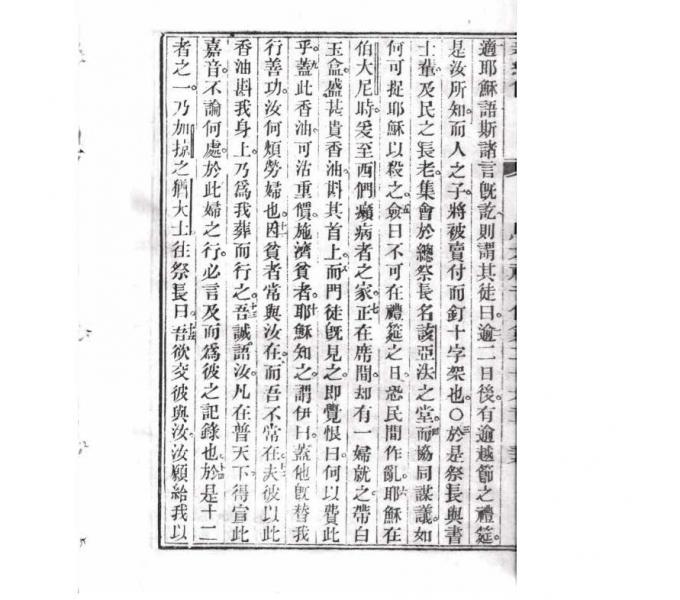 適耶穌語斯諸言旣訖則謂其徒曰逾二日後有逾越節之禮筵
是汝所知而人之子將被賣付而釘十字架也〇於是祭長與書
士輩及民之長老集會於總祭長名該亞法之堂而協同謀議如
何可捉耶穌以殺之僉曰不可在禮筵之日恐民間作亂耶穌在
伯大尼時爰至西們癩病者之家正在席間却有一婦就之帶白
玉盒盛甚貴香油斟其首上而門徒旣見之即覺恨曰何以費此
乎蓋此香油可沽重價施濟貧者耶穌知之謂伊曰蓋他旣替我
行善功汝何煩勞婦也因貧者常與汝在而吾不常在夫彼以此
香油斟我身上乃爲我葬而行之吾誠語汝凡在普天下得宣此
嘉音不論何處於此婦之行必言及而爲彼之記錄也於是十二
者之一乃加掠之猶大士往祭長曰吾欲交彼與汝汝願給我以